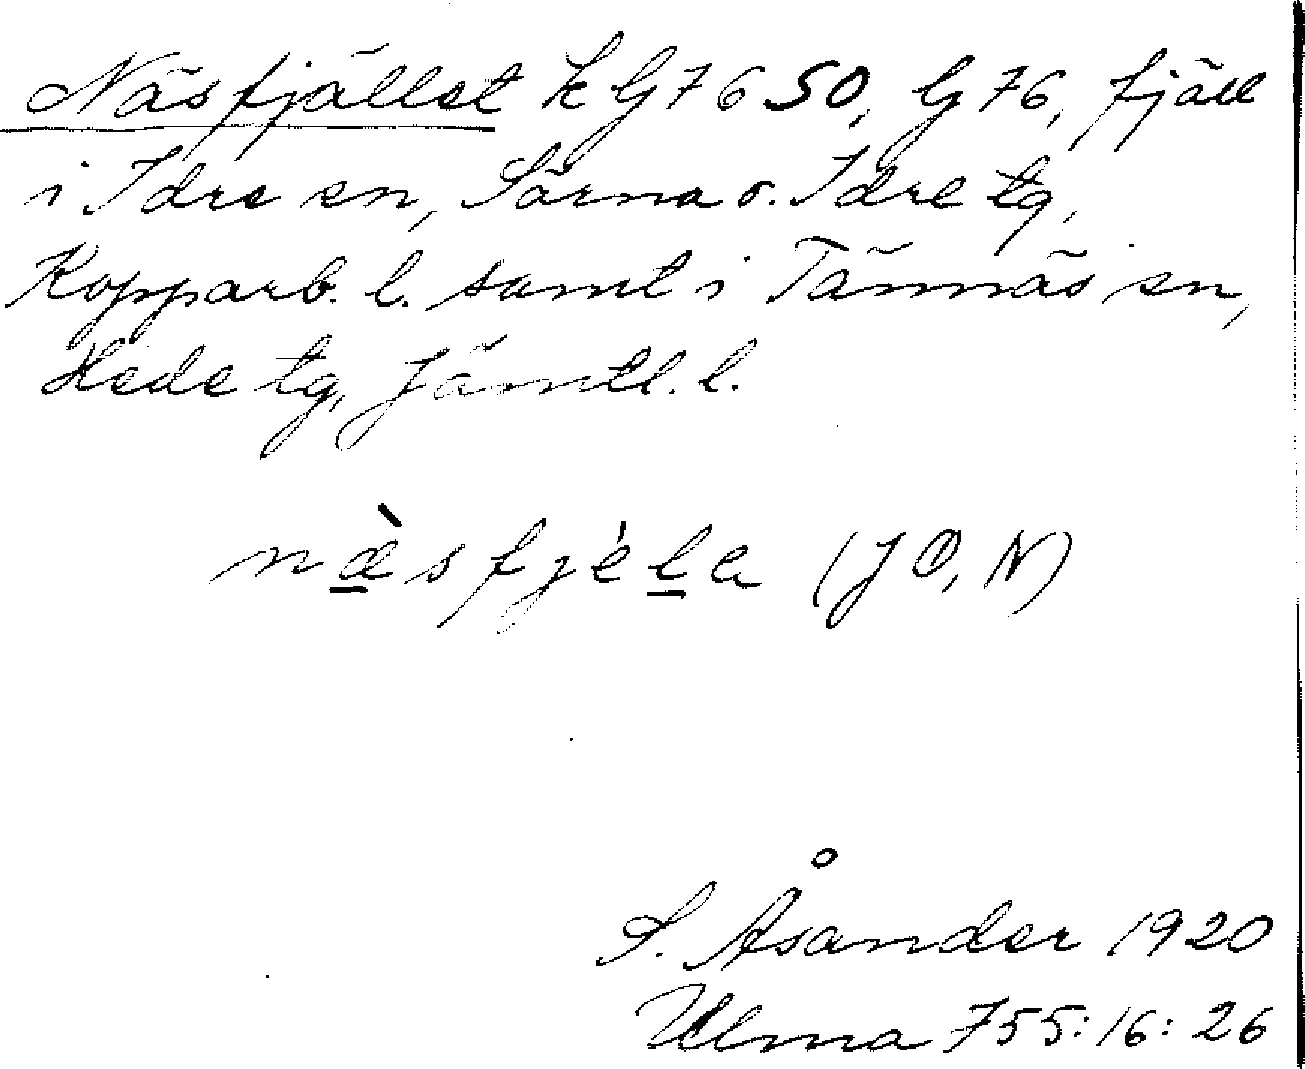 Näsfjället k G7650, G 76, fjäll
i Idre sn, Särna o. Idre tg,
Kopparb. l. samt i Tännäs sn,
Hede tg, Jämtl. l.
næ̀sfjéla (JO, N)
S. Åsander 1920
Ulma 755:16:26